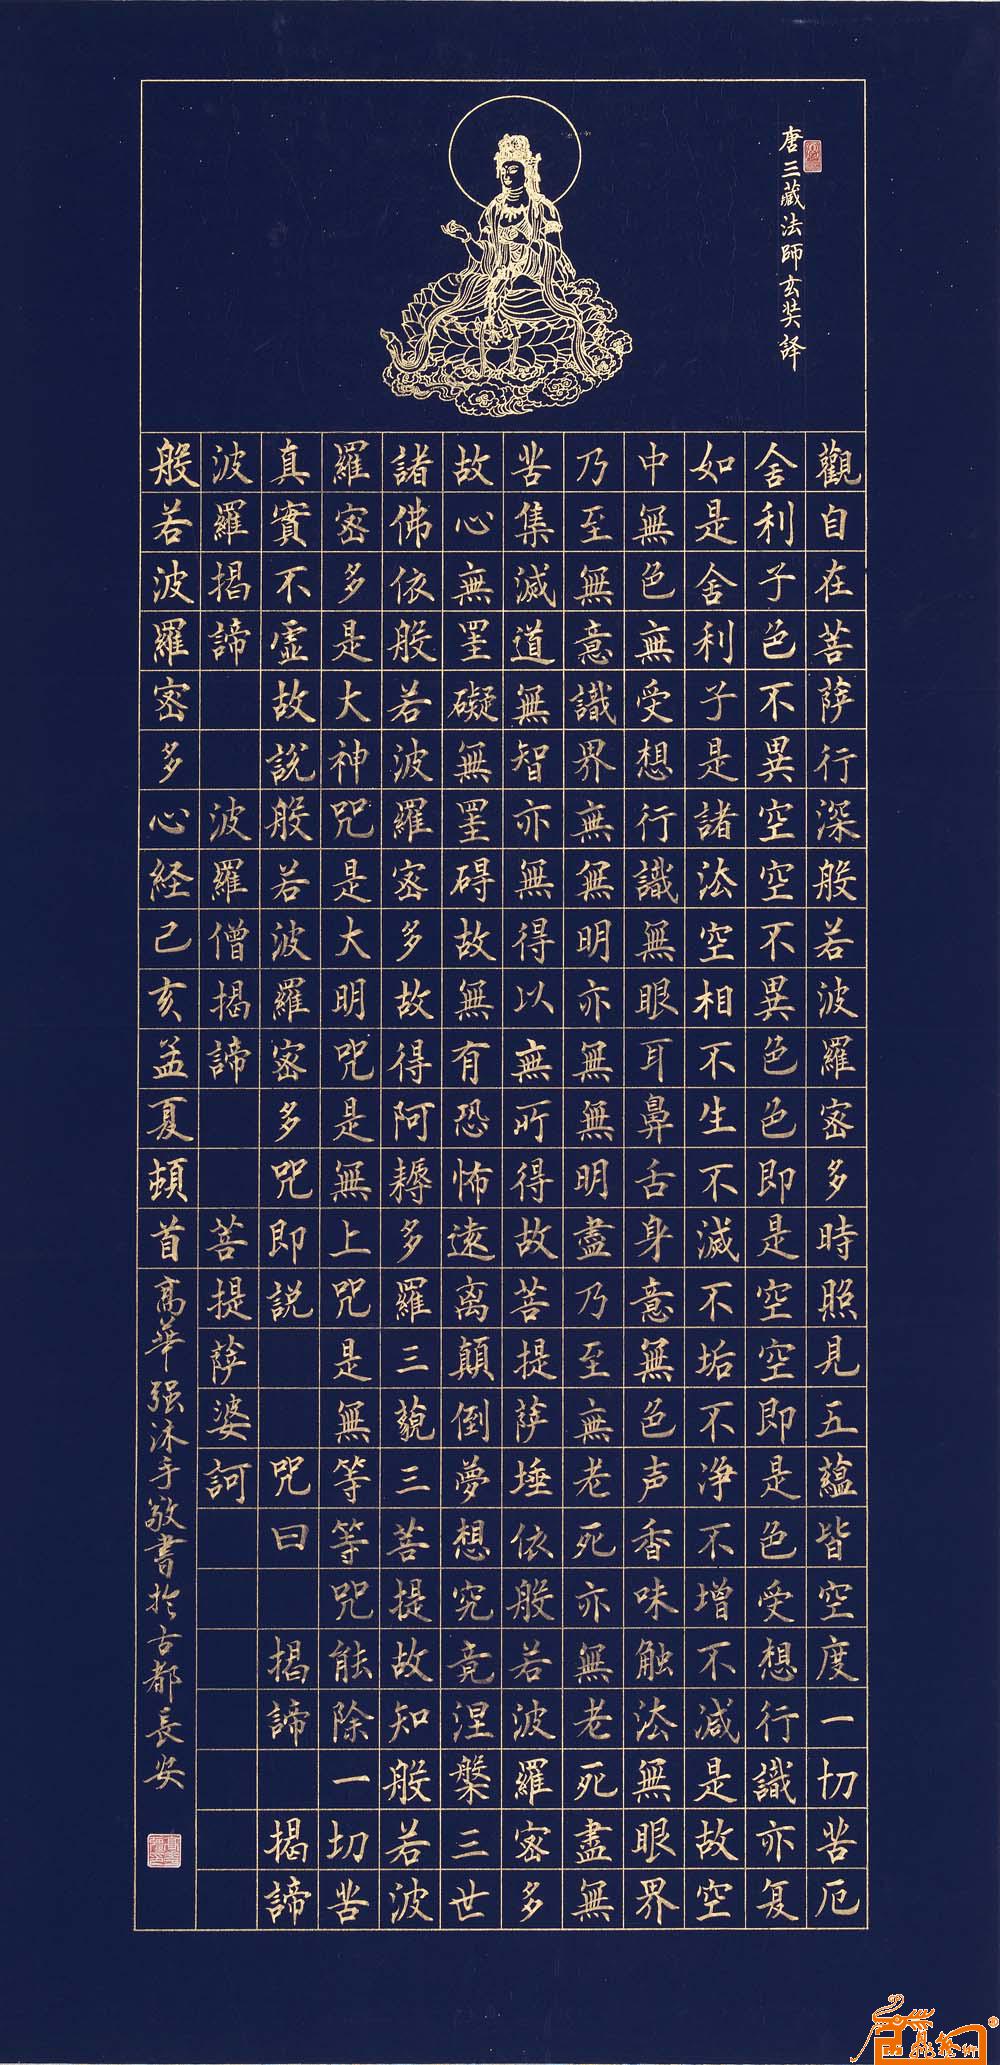 唐三藏法師玄奘譯
觀自在菩薩行深般若波羅密多時照見五蘊皆空度一切苦厄
舍利子色不異空空不異色色即是空空即是色受想行識亦复
如是舍利子是諸法空相不生不滅不垢不净不增不減是故空
中無色無受想行識無眼耳鼻舌身意無色声香味触法無眼界
乃至無意識界無無明亦無無明盡乃至無老死亦無老死盡無
苦集滅道無智亦無得以無所得故菩提薩埵依般若波羅密多
故心無罣礙無罣碍故無有恐怖遠离顛倒夢想究竟涅槃三世
諸佛依般若波羅密多故得阿耨多羅三藐三菩提故知般若波
羅密多是大神咒是大明咒是無上咒是無等等咒能除一切苦
真實不虛故説般若波羅密多咒即説 咒曰 揭諦 揭諦
波羅揭諦 波羅僧揭諦 菩提薩婆訶
般若波羅密多心経己亥孟夏頓首
高華强沐手敬書於古都長安